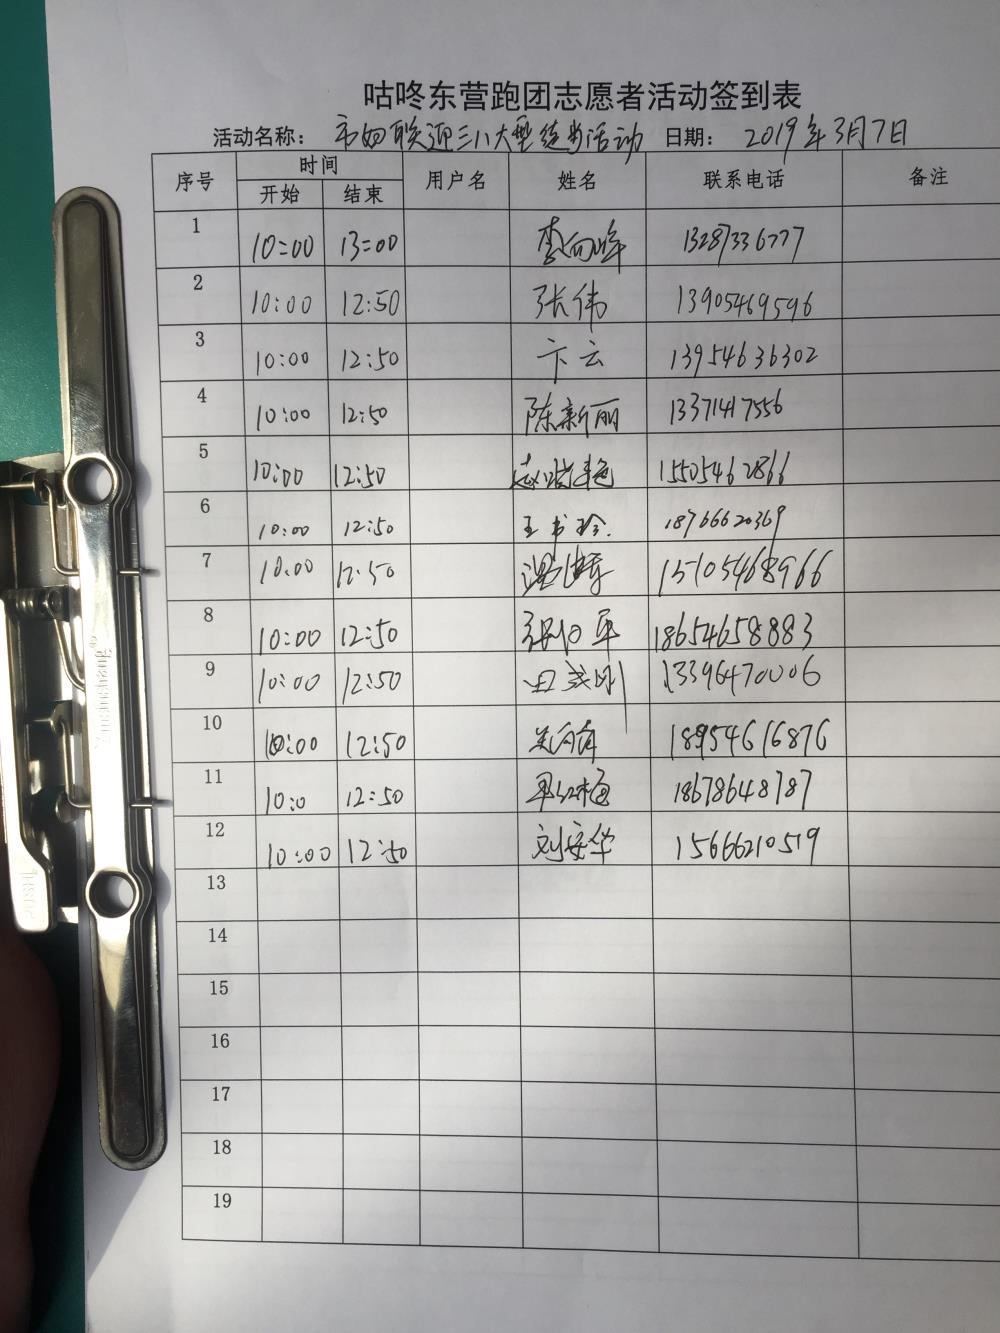 咕咚东营跑团志愿者活动签到表
活动名称： 市妇联迎三八大型健步活动 日期： 2019年3月7日
序号 时间 用户名 姓名 联系电话 备注
开始 结束
1 10:00 13:00 李向峰 13287336777
2 10:00 12:50 张伟 13905469596
3 10:00 12:50 卞云 13954636302
4 10:00 12:50 陈新丽 13371417556
5 10:00 12:50 15505462866
6 10:00 12:50 王书玲 18766620369
7 10:00 12:50 15105468966
8 10:00 12:50 18654658883
9 10:00 12:50 13396470006
10 10:00 12:50 18954616876
11 10:0 12:50 18678648787
12 10:00 12:50 刘安华 15666210519
13
14
15
16
17
18
19